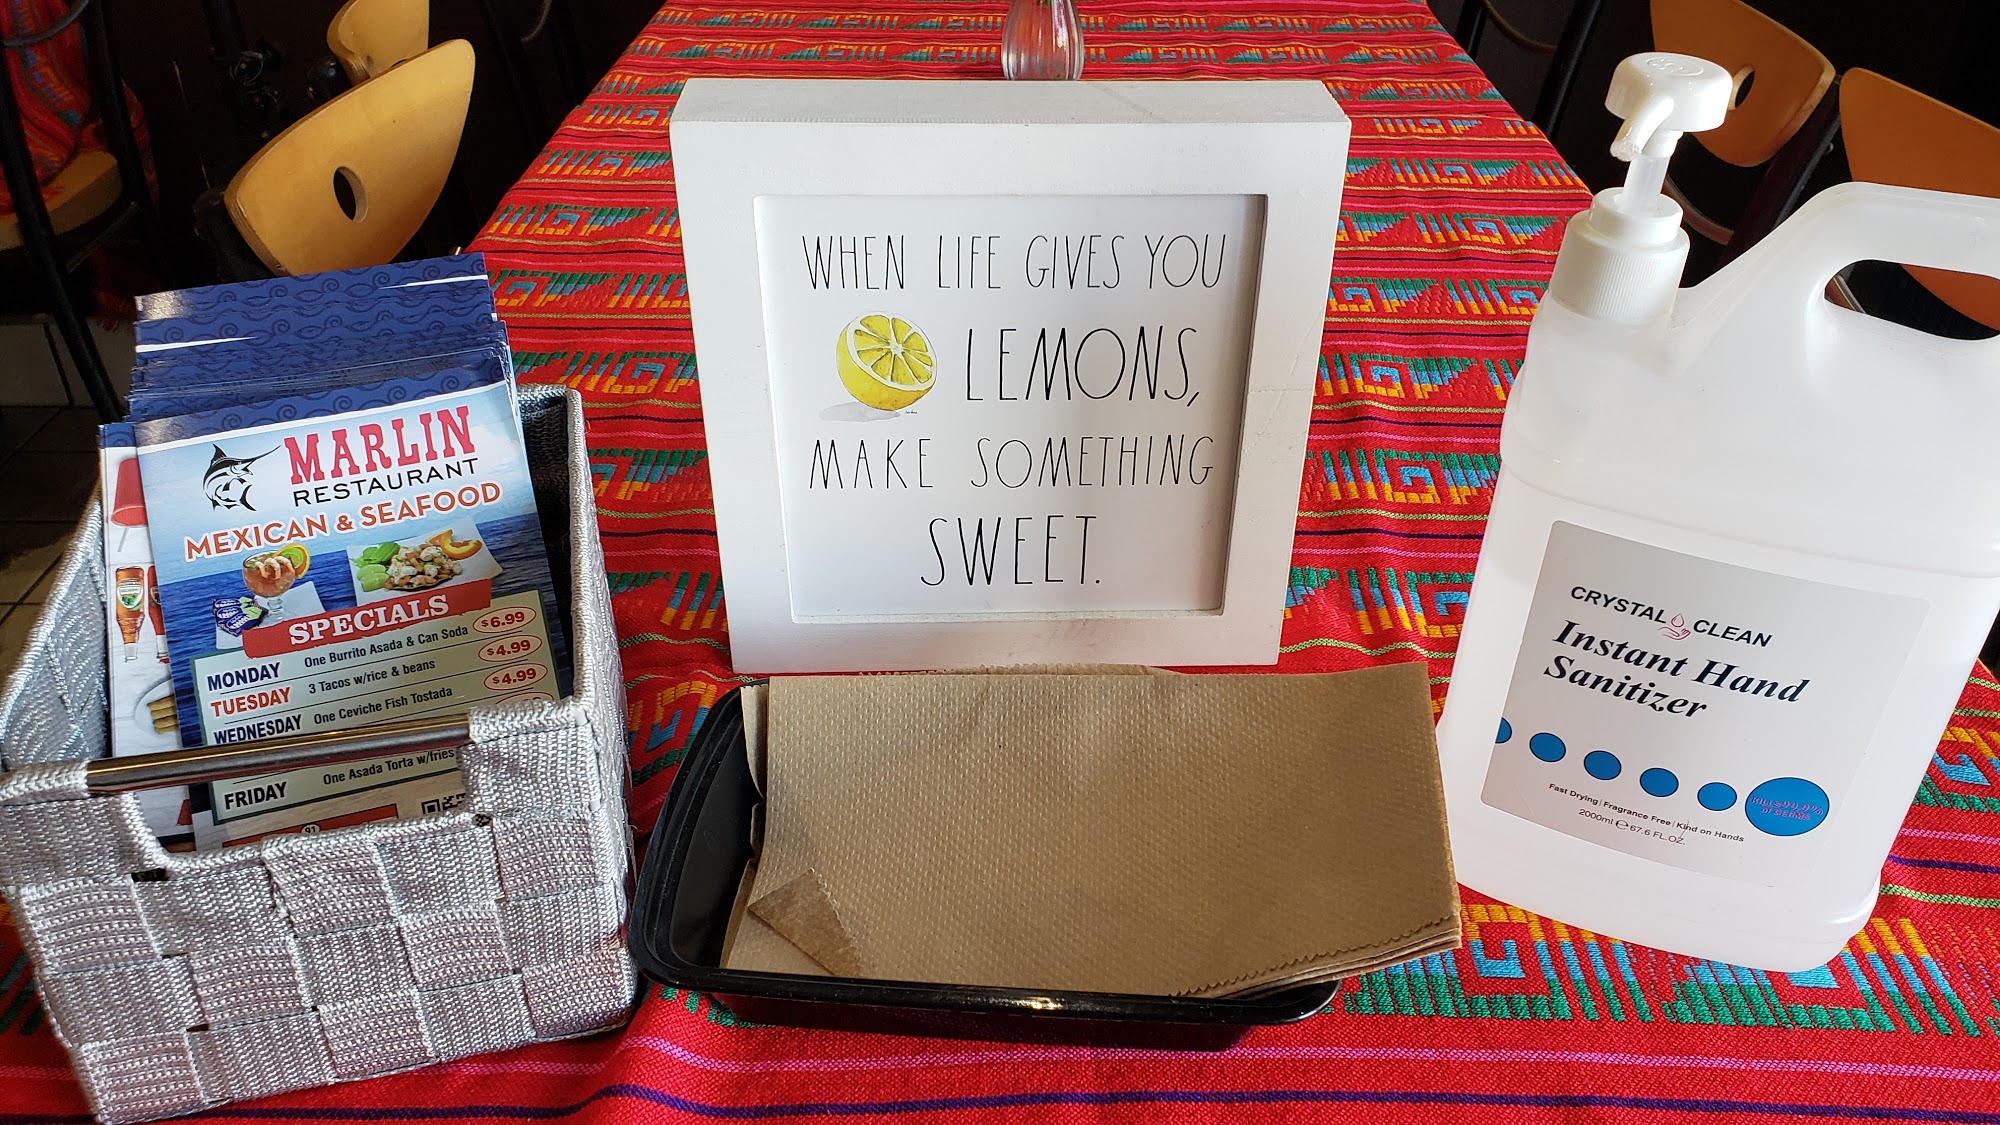 MARLIN
RESTAURANT
MEXICAN & SEAFOOD
SPECIALS
MONDAY One Burrito Asada & Can Soda $6.99
TUESDAY 3 Tacos w/rice & beans $4.99
WEDNESDAY One Ceviche Fish Tostada $4.99
FRIDAY One Asada Torta w/fries
91
WHEN LIFE GIVES YOU
LEMONS,
MAKE SOMETHING
SWEET.
CRYSTAL CLEAN
Instant Hand
Sanitizer
KILLS 99.9%
OF GERMS
Fast Drying | Fragrance Free | Kind on Hands
2000ml ℮ 67.6 FL.OZ.